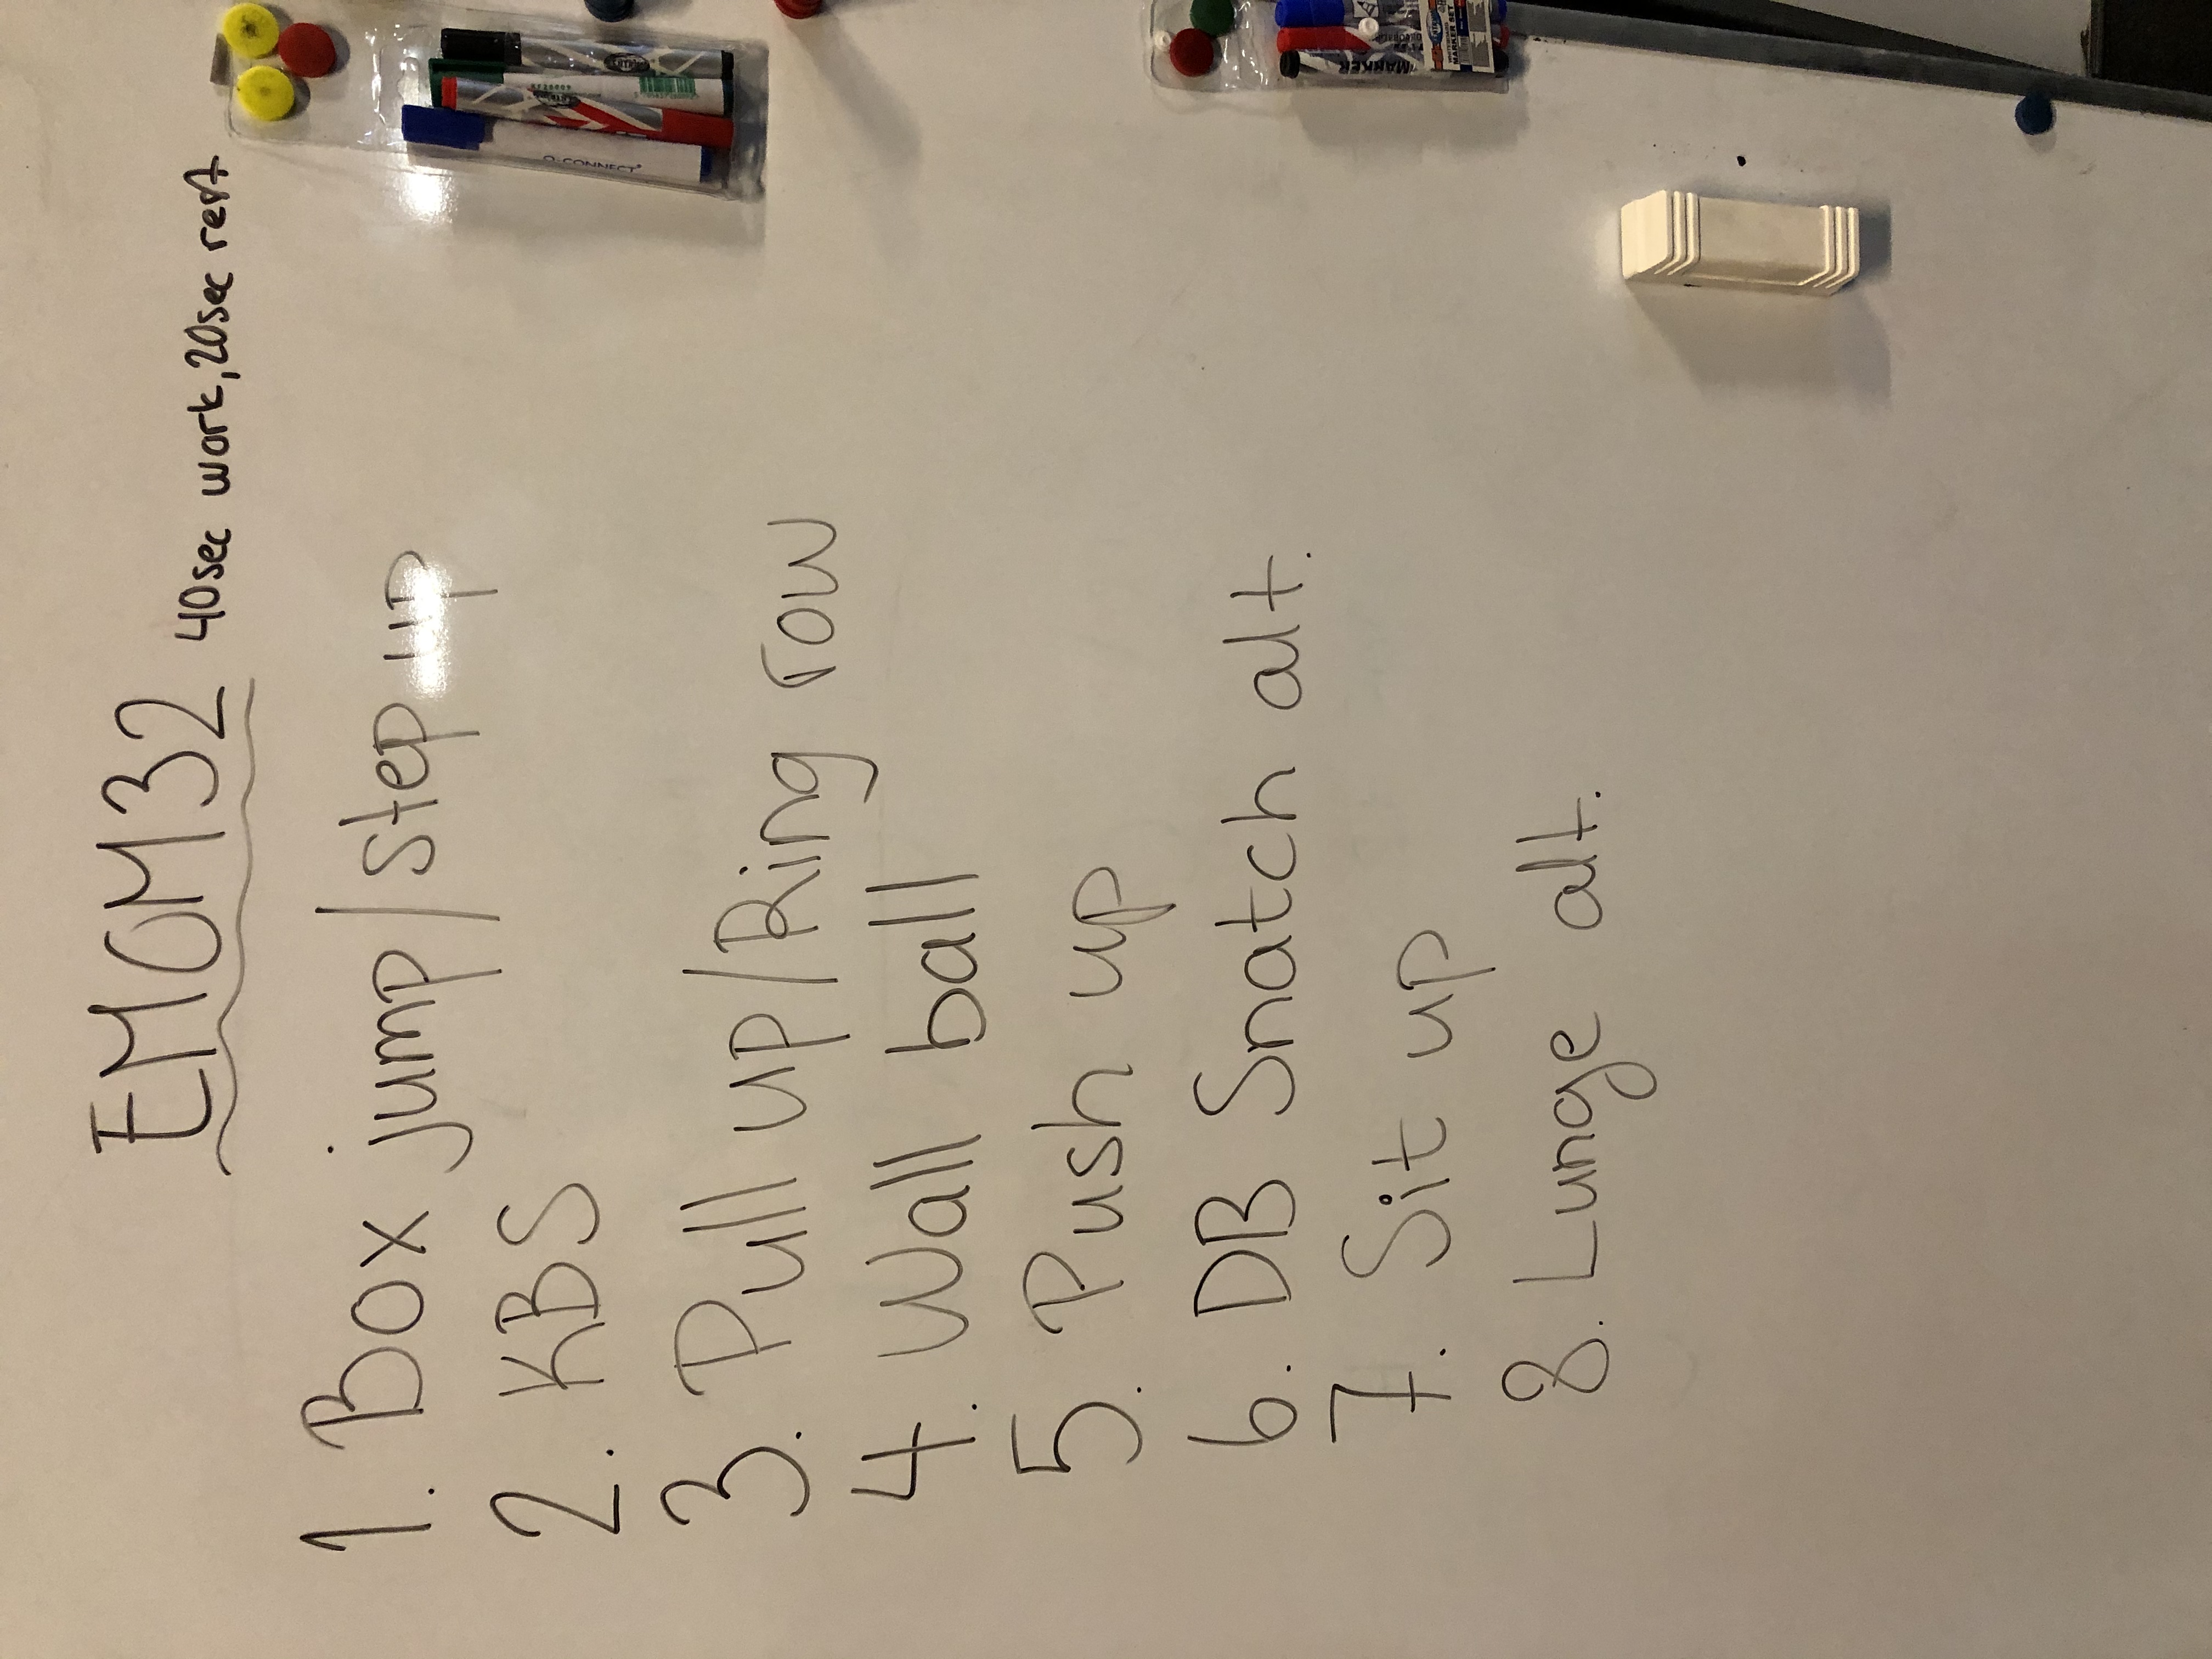 EMOM32 40sec work, 20sec rest
1. Box jump / Step up
2. KBS
3. Pull up / Ring row
4. Wall ball
5. Push up
6. DB Snatch alt.
7. Sit up
8. Lunge alt.
Q-CONNECT
MARKER
MARKER SET